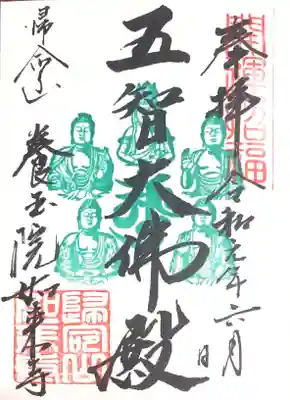 開運招福
奉拝
令和元年六月 日
五智大佛殿
帰命山
養玉院如来寺
歸命山
如来寺